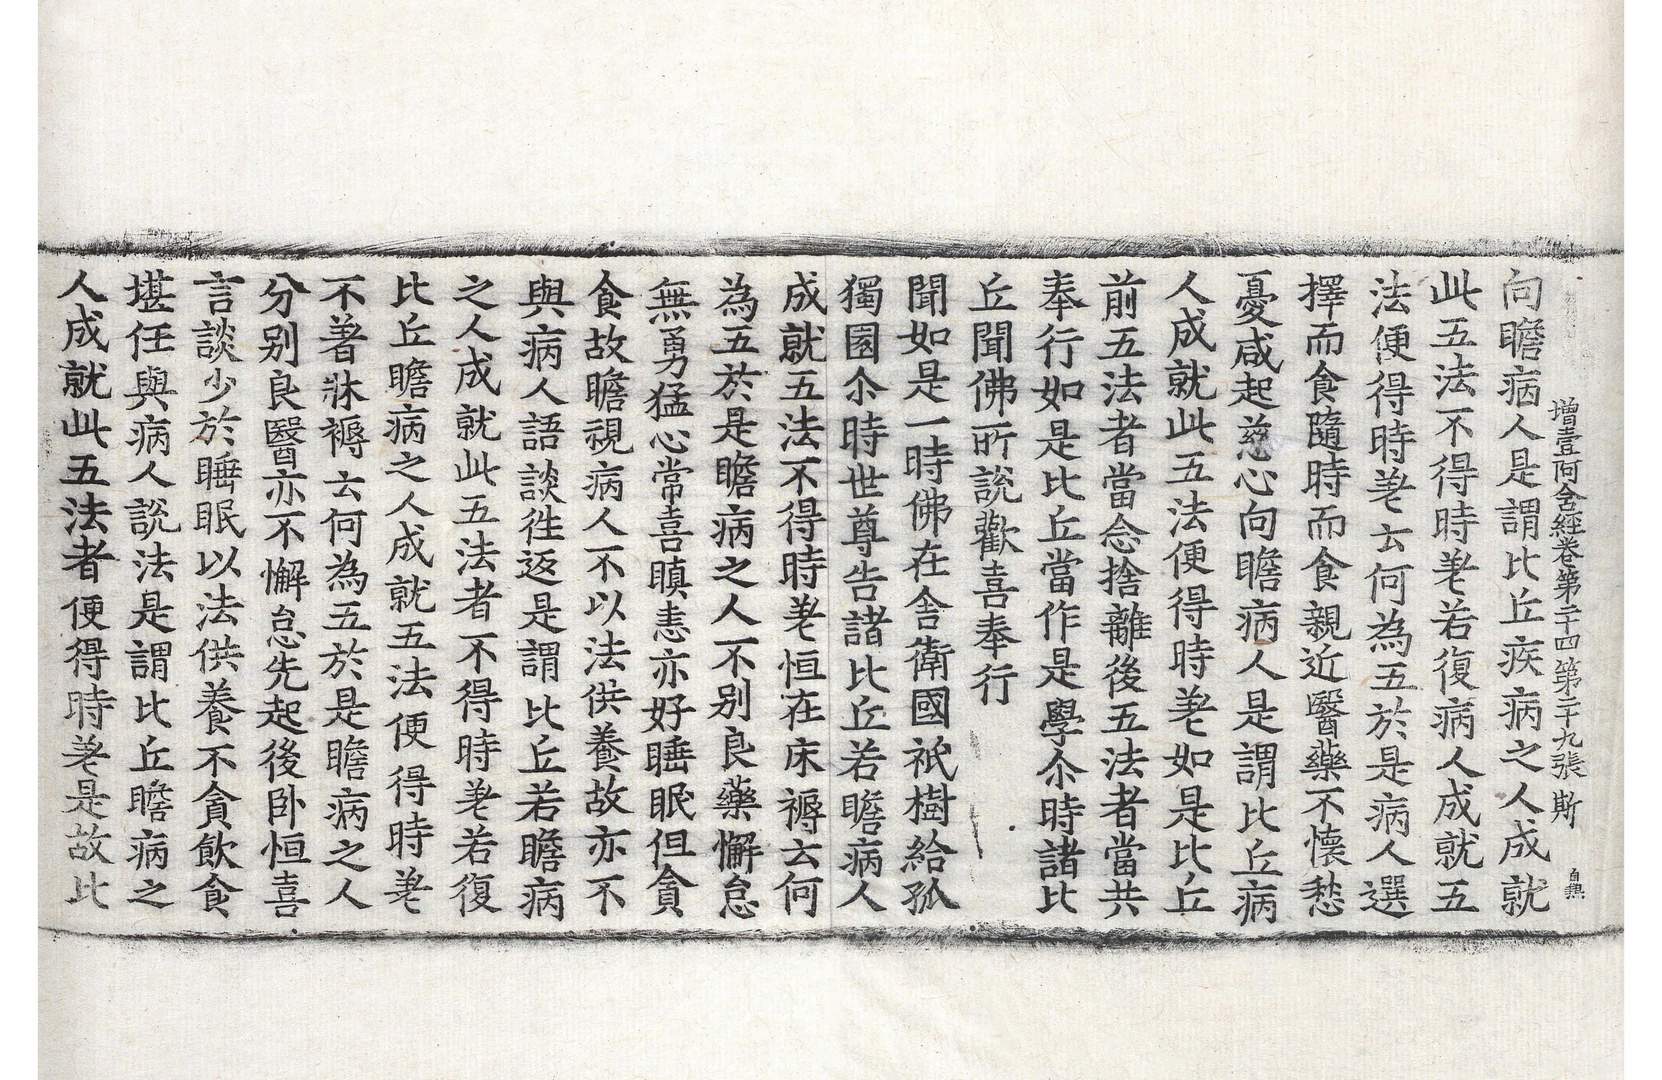 增壹阿含經卷第二十四第二十九張 斯
向瞻病人是謂比丘疾病之人成就
此五法不得時差若復病人成就五
法便得時差云何為五於是病人選
擇而食隨時而食親近醫藥不懷愁
憂咸起慈心向瞻病人是謂比丘病
人成就此五法便得時差如是比丘
前五法者當念捨離後五法者當共
奉行如是比丘當作是學尒時諸比
丘聞佛所說歡喜奉行
聞如是一時佛在舍衛國祇樹給孤
獨園尒時世尊告諸比丘若瞻病人
成就五法不得時差恒在床褥云何
為五於是瞻病之人不別良藥懈怠
無勇猛心常喜瞋恚亦好睡眠但貪
食故瞻視病人不以法供養故亦不
與病人語談往返是謂比丘若瞻病
之人成就此五法者不得時差若復
比丘瞻病之人成就五法便得時差
不著牀褥云何為五於是瞻病之人
分別良醫亦不懈怠先起後卧恒喜
言談少於睡眠以法供養不貪飲食
堪任與病人說法是謂比丘瞻病之
人成就此五法者便得時差是故比